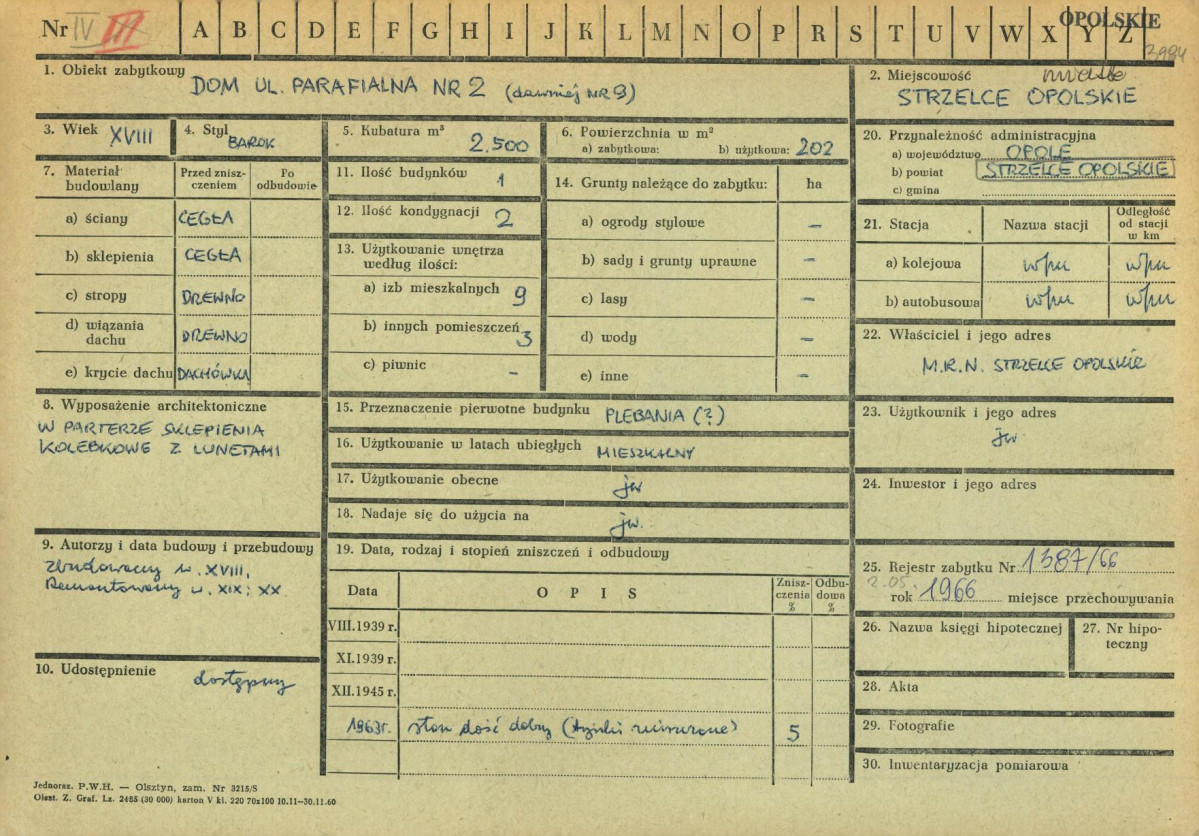 Nr IV III A B C D E F G H I J K L M N O P R S T U V W X Y Z OPOLSKIE
3994
1. Obiekt zabytkowy
DOM UL. PARAFIALNA NR 2 (dawniej NR 9)
2. Miejscowość
STRZELCE OPOLSKIE
3. Wiek XVIII
4. Styl BAROK
5. Kubatura m³ 2.500
6. Powierzchnia w m²
a) zabytkowa: b) użytkowa: 202
20. Przynależność administracyjna
a) województwo OPOLE
b) powiat STRZELCE OPOLSKIE
c) gmina
7. Materiał budowlany
Przed zniszczeniem
Po odbudowie
a) ściany CEGŁA
b) sklepienia CEGŁA
c) stropy DREWNO
d) wiązania dachu DREWNO
e) krycie dachu DACHÓWKA
11. Ilość budynków 1
12. Ilość kondygnacji 2
13. Użytkowanie wnętrza
według ilości:
a) izb mieszkalnych 9
b) innych pomieszczeń 3
c) piwnic -
14. Grunty należące do zabytku: ha
a) ogrody stylowe -
b) sady i grunty uprawne -
c) lasy -
d) wody -
e) inne -
21. Stacja Nazwa stacji Odległość od stacji w km
a) kolejowa
b) autobusowa
22. Właściciel i jego adres
M.R.N. STRZELCE OPOLSKIE
8. Wyposażenie architektoniczne
W PARTERZE SKLEPIENIA
KOLEBKOWE Z LUNETAMI
15. Przeznaczenie pierwotne budynku PLEBANIA (?)
16. Użytkowanie w latach ubiegłych MIESZKALNY
17. Użytkowanie obecne jw
18. Nadaje się do użycia na jw.
23. Użytkownik i jego adres
jw.
24. Inwestor i jego adres
9. Autorzy i data budowy i przebudowy
Zbudowany w. XVIII,
Remontowany w. XIX i XX
10. Udostępnienie dostępny
19. Data, rodzaj i stopień zniszczeń i odbudowy
Data OPIS Zniszczenia % Odbudowa %
VIII.1939 r.
XI.1939 r.
XII.1945 r.
1963r. stan dość dobry 5
25. Rejestr zabytku Nr 1387/66
2.05.
rok 1966 miejsce przechowywania
26. Nazwa księgi hipotecznej
27. Nr hipoteczny
28. Akta
29. Fotografie
30. Inwentaryzacja pomiarowa
Jednoraz. P.W.H. — Olsztyn, zam. Nr 3215/S
Olszt. Z. Graf. Lz. 2485 (30 000) karton V kl. 220 70x100 10.11—30.11.60